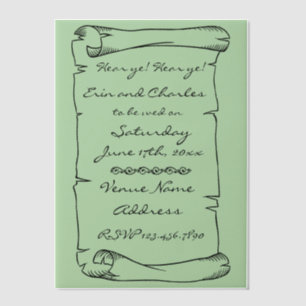 Hear ye! Hear ye!
Erin and Charles
to be wed on
Saturday
June 17th, 20xx
Venue Name
Address
RSVP 123.456.7890